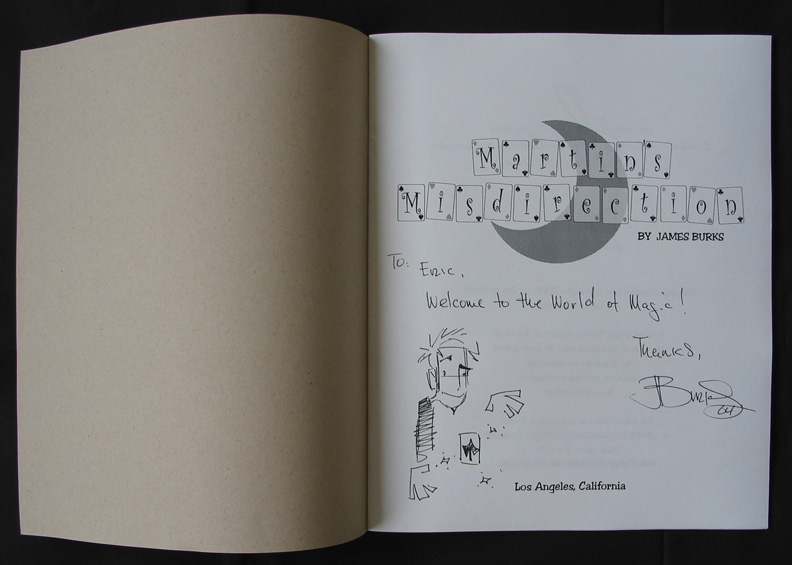 Martin's
Misdirection
BY JAMES BURKS
To: Eric,
Welcome to the World of Magic!
Thanks,
JBurks
04
Los Angeles, California